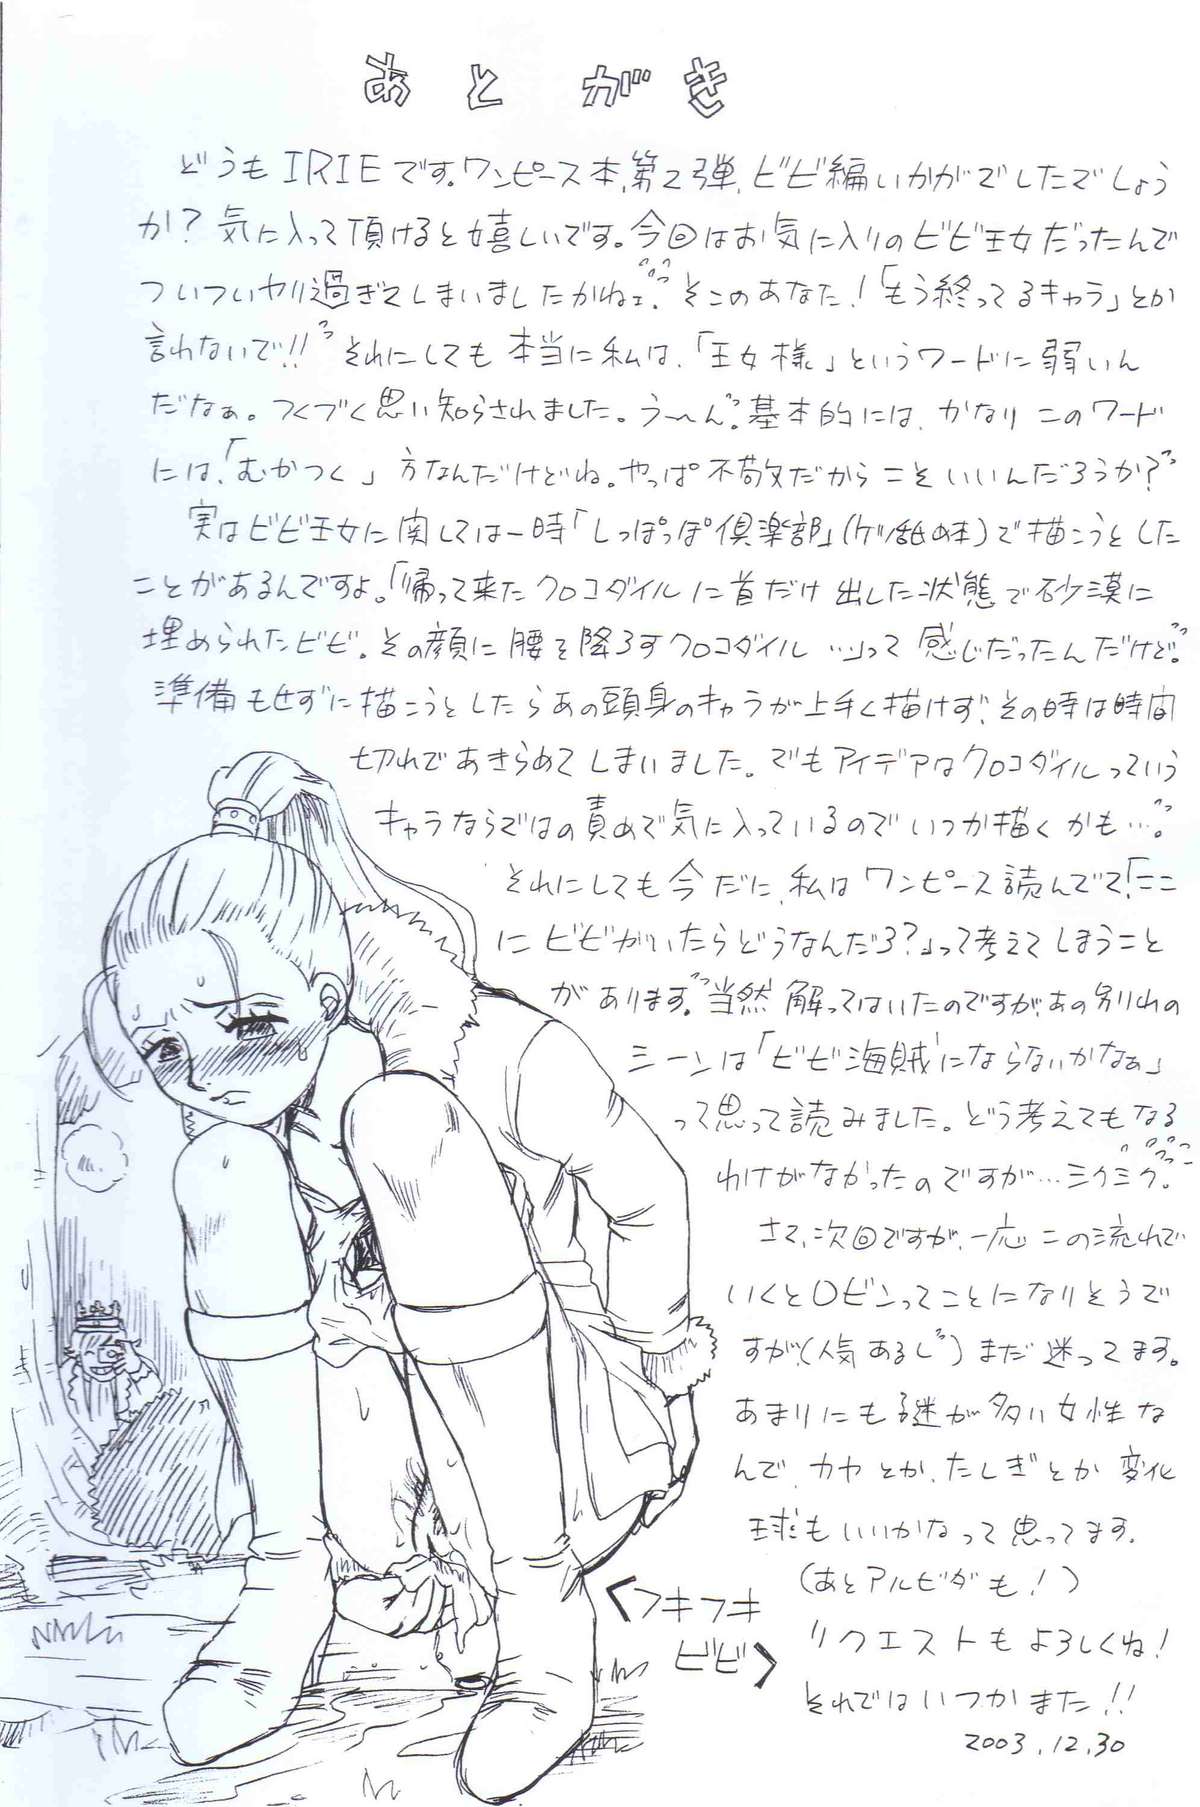 あとがき
どうもIRIEです。ワンピース本、第2弾、ビビ編いかがでしたでしょう
か？気に入って頂けると嬉しいです。今回はお気に入りのビビ王女だったんで
ついついヤリ過ぎてしまいましたかねェ。そこのあなた！「もう終ってるキャラ」とか
言わないで！！それにしても本当に私は、「王女様」というワードに弱いん
だなぁ。つくづく思い知らされました。う～ん。基本的には、かなりこのワード
には、「むかつく」方なんだけどね。やっぱ不敬だからこそいいんだろうか？
実はビビ王女に関しては一時「しっぽっぽ倶楽部」(ケツ舐め本)で描こうとした
ことがあるんですよ。「帰って来たクロコダイルに首だけ出した状態で砂漠に
埋められたビビ。その顔に腰を降ろすクロコダイル…」って感じだったんだけど。
準備もせずに描こうとしたらあの頭身のキャラが上手く描けず、その時は時間
切れであきらめてしまいました。でもアイデアはクロコダイルっていう
キャラならではの責めで気に入っているのでいつか描くかも…。
それにしても今だに、私はワンピース読んでて「ここ
にビビがいたらどうなんだろ？」って考えてしまうこと
があります。当然解ってはいたのですが、あの別れの
シーンは「ビビ海賊にならないかなぁ」
って思って読みました。どう考えてもなる
わけがなかったのですが…ミクミク。
さて、次回ですが、一応この流れで
いくとロビンってことになりそうで
すが、(人気あるし)まだ迷ってます。
あまりにも謎が多い女性な
んで、カヤとか、たしぎとか変化
球もいいかなって思ってます。
(あとアルビダも！)
リクエストもよろしくね！
それではいつかまた！！
2003.12.30
<フキフキ
ビビ>